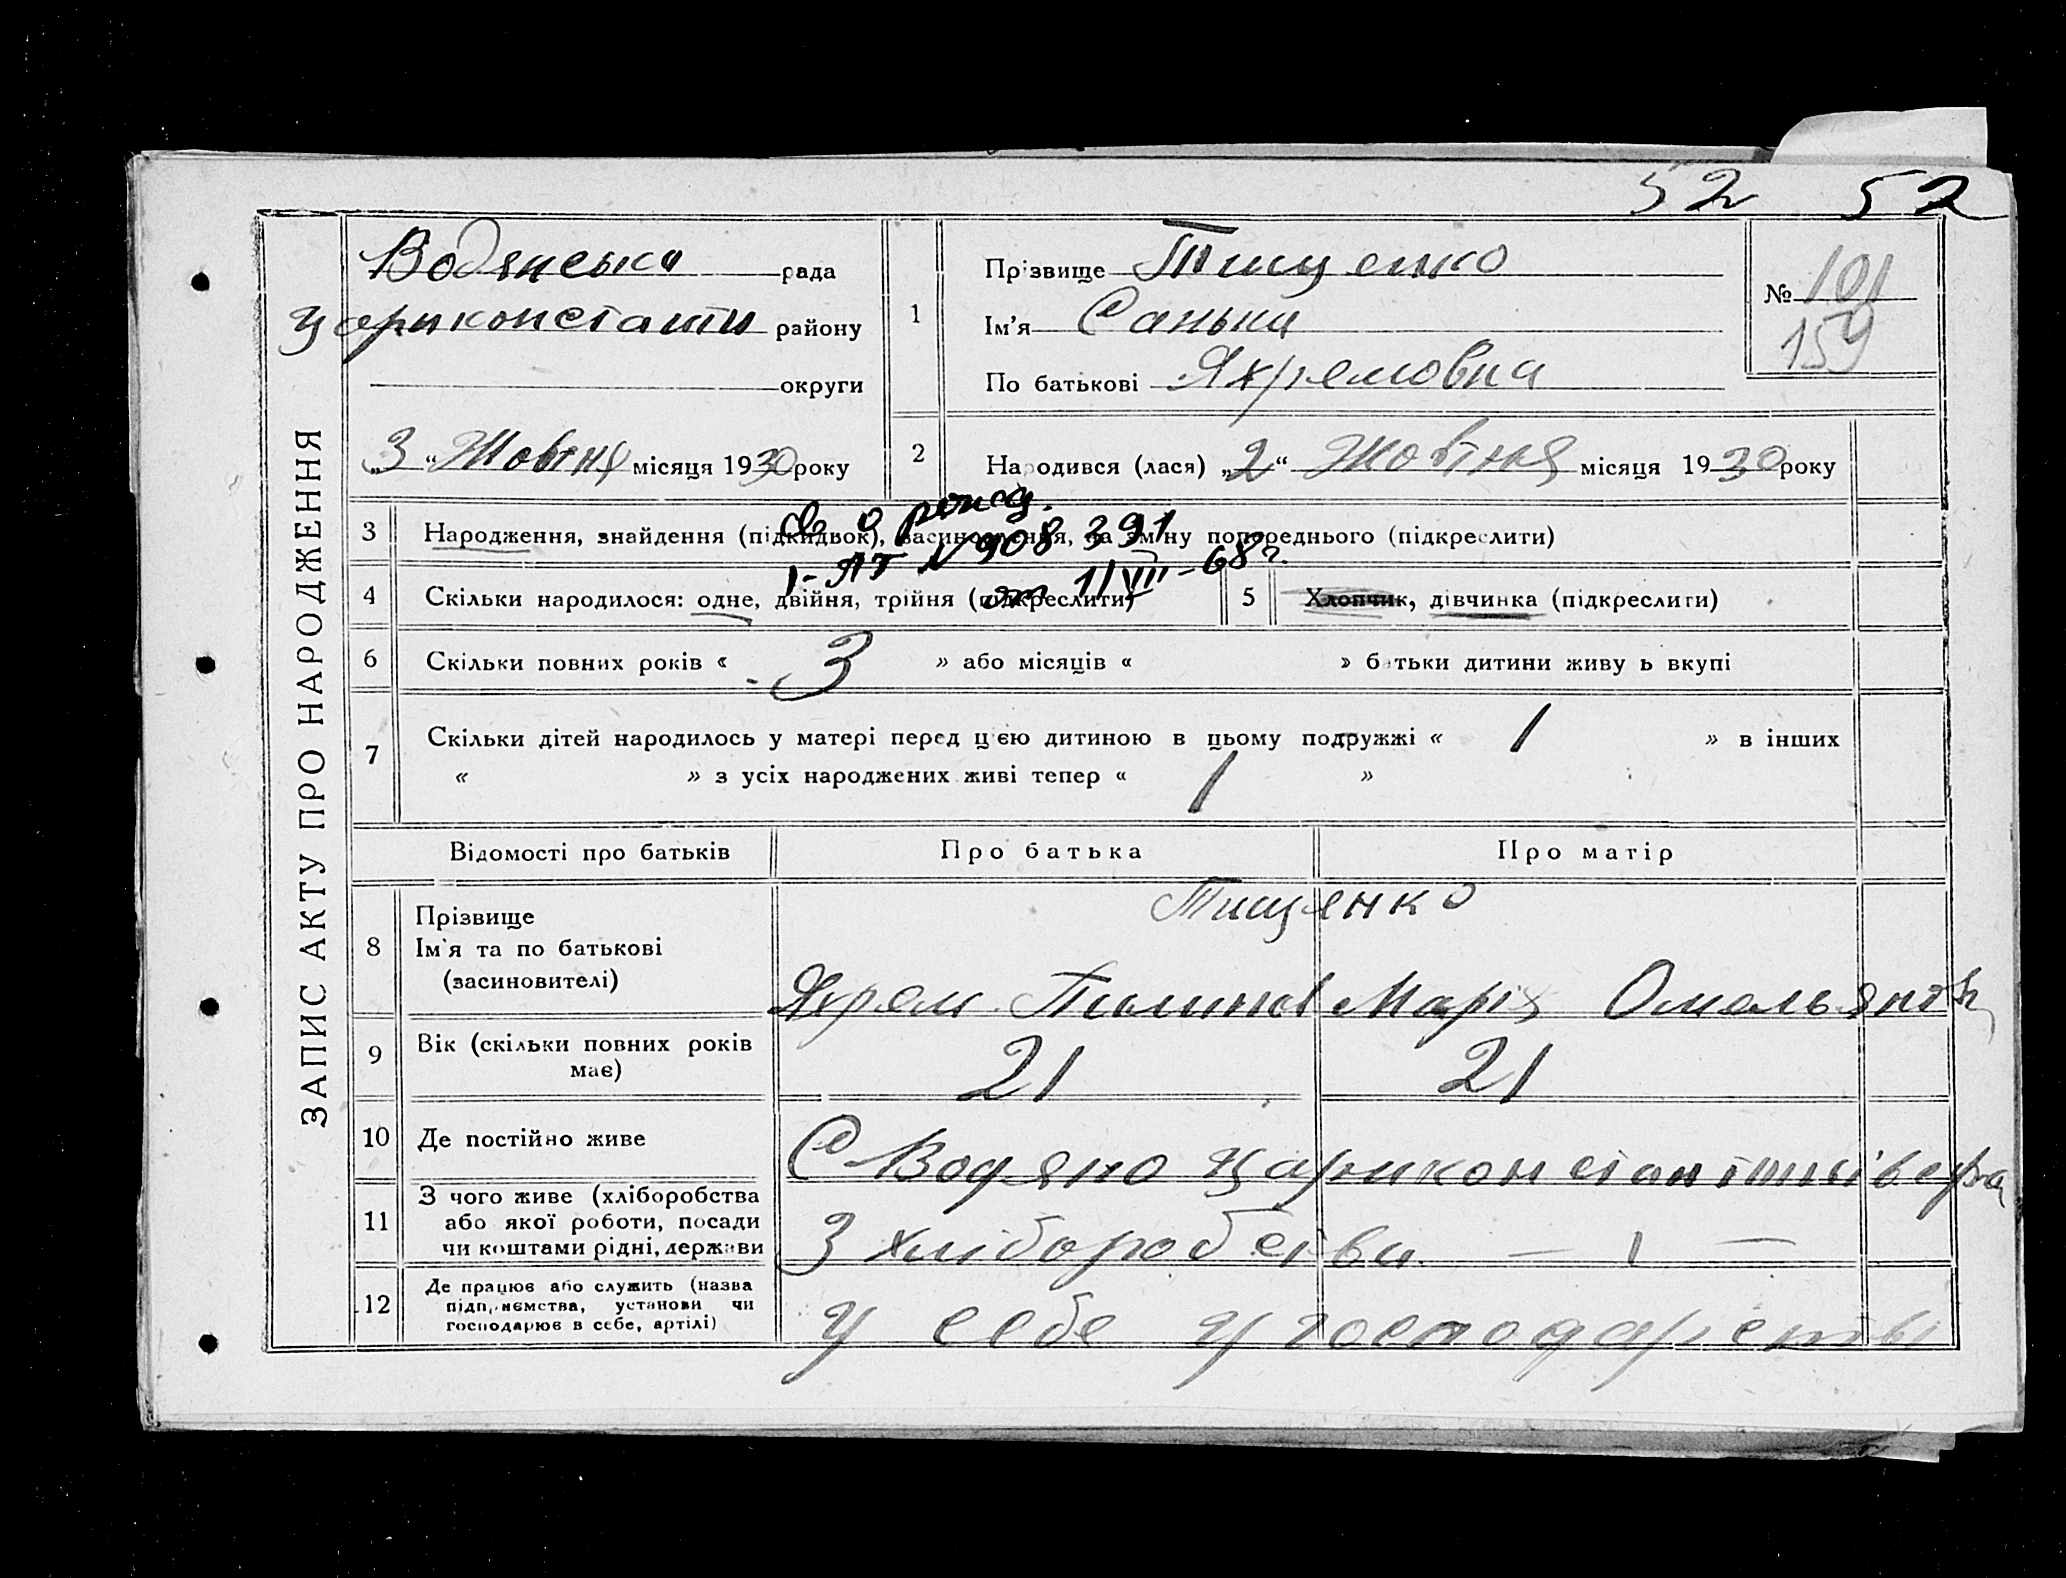 52 52
ЗАПИС АКТУ ПРО НАРОДЖЕННЯ
Водянська рада
Цариконстанти району
округи
„3“ Жовтня місяця 1930 року
1
Прізвище Тищенко
Ім'я Саньки
По батькові Яхремовна
№ 101
159
2
Народився (лася) „2“ Жовтня місяця 1930 року
3 Народження, знайдення (підкидьок), засиновлення, на зміну попереднього (підкреслити)
Св о рожд.
I-ЯТ №908391
от 1/VII-68 г.
4 Скільки народилося: одне, двійня, трійня (підкреслити)
5 Хлопчик, дівчинка (підкреслити)
6 Скільки повних років « 3 » або місяців « » батьки дитини живуть вкупі
7 Скільки дітей народилось у матері перед цією дитиною в цьому подружжі « 1 » в інших
« » з усіх народжених живі тепер « 1 »
Відомості про батьків Про батька Про матір
8 Прізвище
Ім'я та по батькові
(засиновителі)
Тищенко
Яхрем Пилипов Марія Омельянов
9 Вік (скільки повних років
має)
21 21
10 Де постійно живе
С Водяно Цариконстантинівс р-на
11 З чого живе (хліборобства
або якої роботи, посади
чи коштами рідні, держави
З хліборобства — 1 —
12 Де працює або служить (назва
підприємства, установи чи
господарює в себе, артілі)
У себе у господарстві